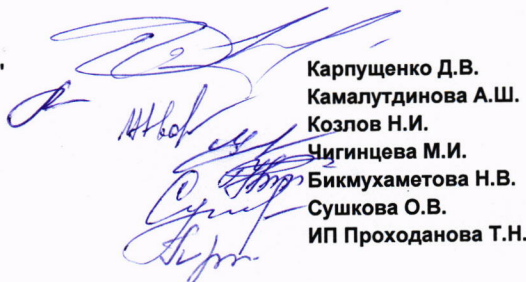 Карпущенко Д.В.
Камалутдинова А.Ш.
Козлов Н.И.
Чигинцева М.И.
Бикмухаметова Н.В.
Сушкова О.В.
ИП Проходанова Т.Н.